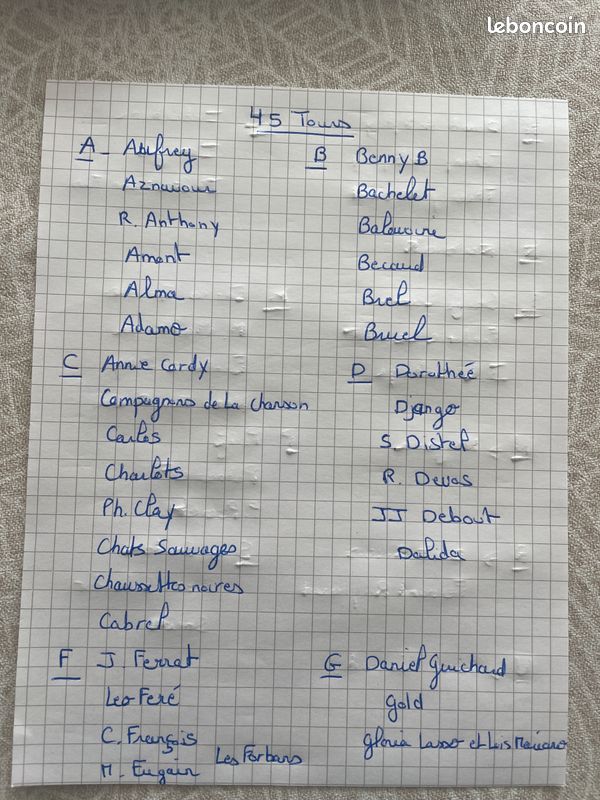 leboncoin
45 Tours
A - Aufrey
Aznavour
R. Anthony
Amont
Alma
Adamo
B Benny B
Bachelet
Balavoine
Becaud
Brel
Bruel
C Annie Cordy
Compagnons de La chanson
Carlos
Charlots
Ph. Clay
Chats Sauvages
Chaussettes noires
Cabrel
D Dorothée
Django
S. Distel
R. Devos
JJ Debout
Dalida
F J. Ferrat
Leo Feré
C. François
M. Fugain
Les Forbans
G Daniel Guichard
Gold
Gloria Lasso et Luis Mariano